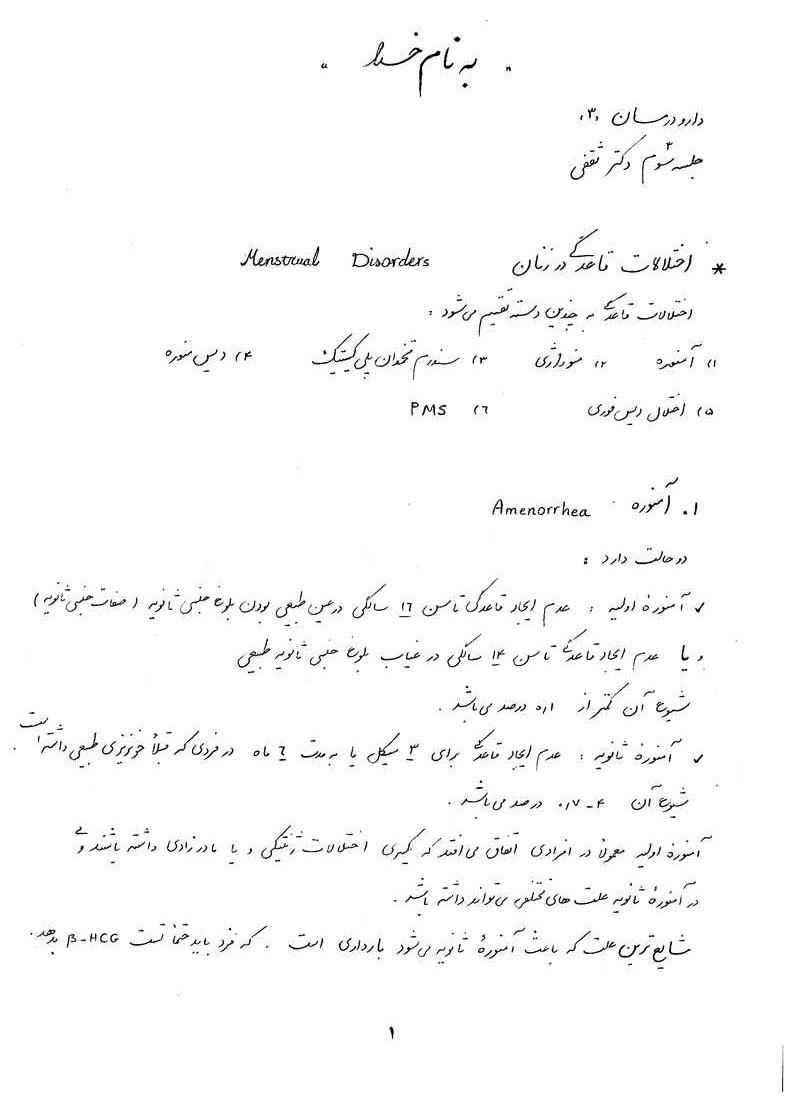 " به نام خدا "
دارو درمان «۳»
جلسه سوم ۳ دکتر ثقفی
* اختلالات قاعدگی در زنان Menstrual Disorders
اختلالات قاعدگی به چندین دسته تقسیم می‌شود :
۱) آمنوره ۲) منوراژی ۳) سندرم تخمدان پلی کیستیک ۴) دیس منوره
۵) اختلال دیس فوری ۶) PMS
۱. آمنوره Amenorrhea
دو حالت دارد :
✓ آمنورۀ اولیه : عدم ایجاد قاعدگی تا سن ۱۶ سالگی در عین طبیعی بودن بلوغ جنسی ثانویه (صفات جنسی ثانویه)
و یا عدم ایجاد قاعدگی تا سن ۱۴ سالگی در غیاب بلوغ جنسی ثانویه طبیعی
شیوع آن کمتر از ۰/۱ درصد می‌باشد .
✓ آمنورۀ ثانویه : عدم ایجاد قاعدگی برای ۳ سیکل یا به مدت ۶ ماه در فردی که قبلاً خونریزی طبیعی داشته است .
شیوع آن ۴ - ۰/۷ درصد می‌باشد .
آمنورۀ اولیه معمولاً در افرادی اتفاق می‌افتد که یکسری اختلالات ژنتیکی و یا مادرزادی داشته باشند ولی
در آمنورۀ ثانویه علت های مختلفی می‌تواند داشته باشد .
شایع ترین علت که باعث آمنورۀ ثانویه می‌شود بارداری است . که فرد باید حتماً تست β-HCG بدهد .
۱